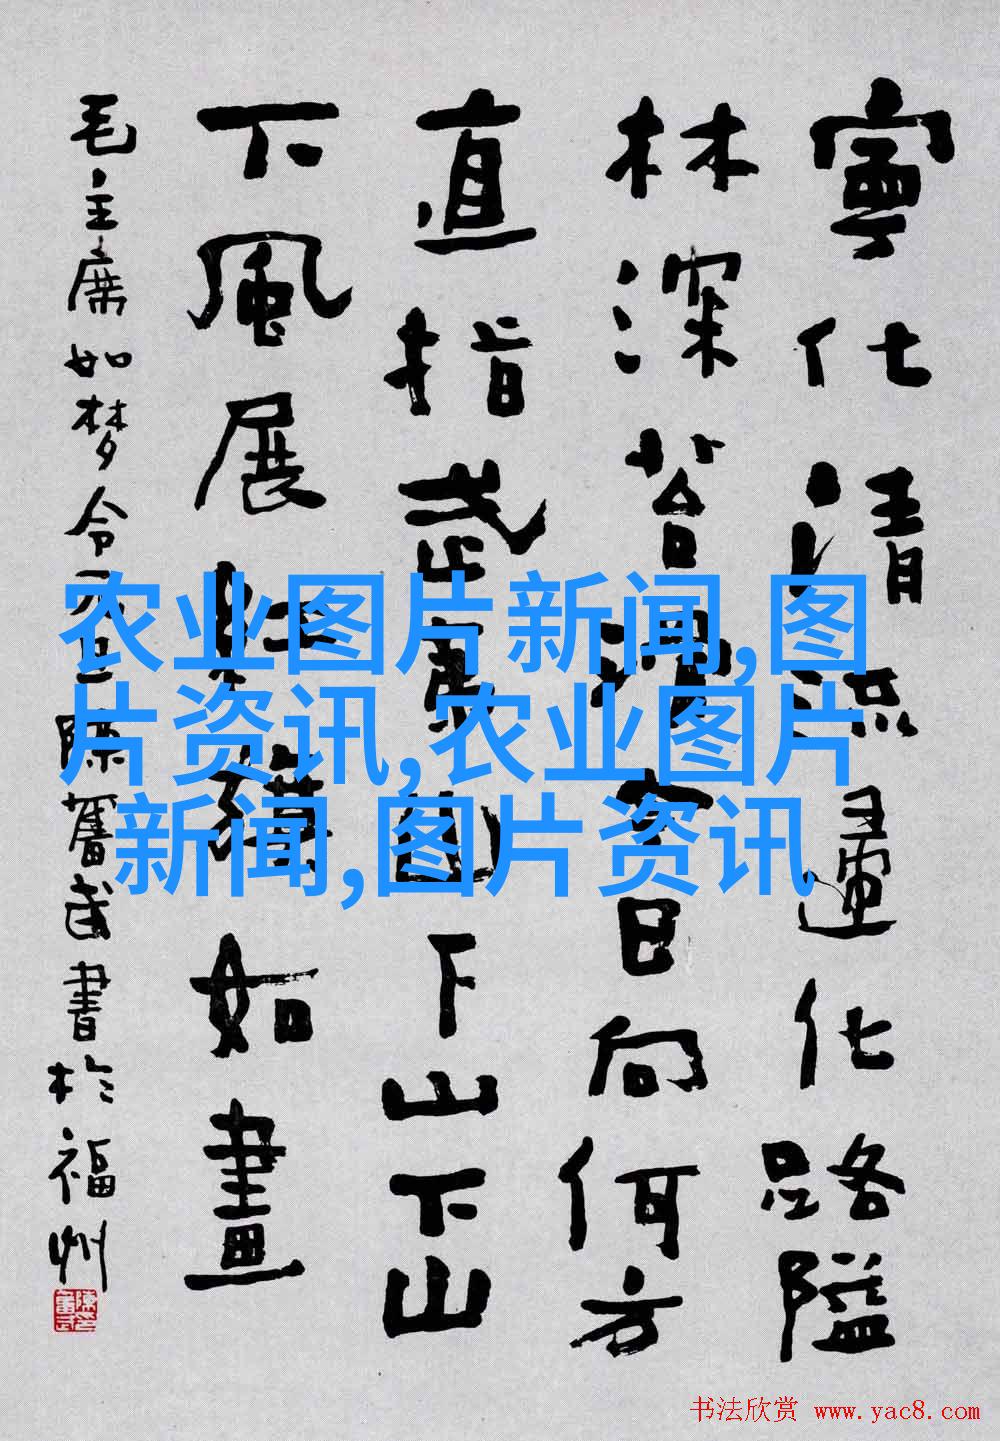 寧化清流歸化路隘
林深苔滑今日向何方
直指武夷山下山下山
下風展紅旗如畫
毛主席如梦令元旦陳奮武書於福州
农业图片新闻,图
片资讯,农业图片
新闻,图片资讯
书法欣赏 www.yac8.com